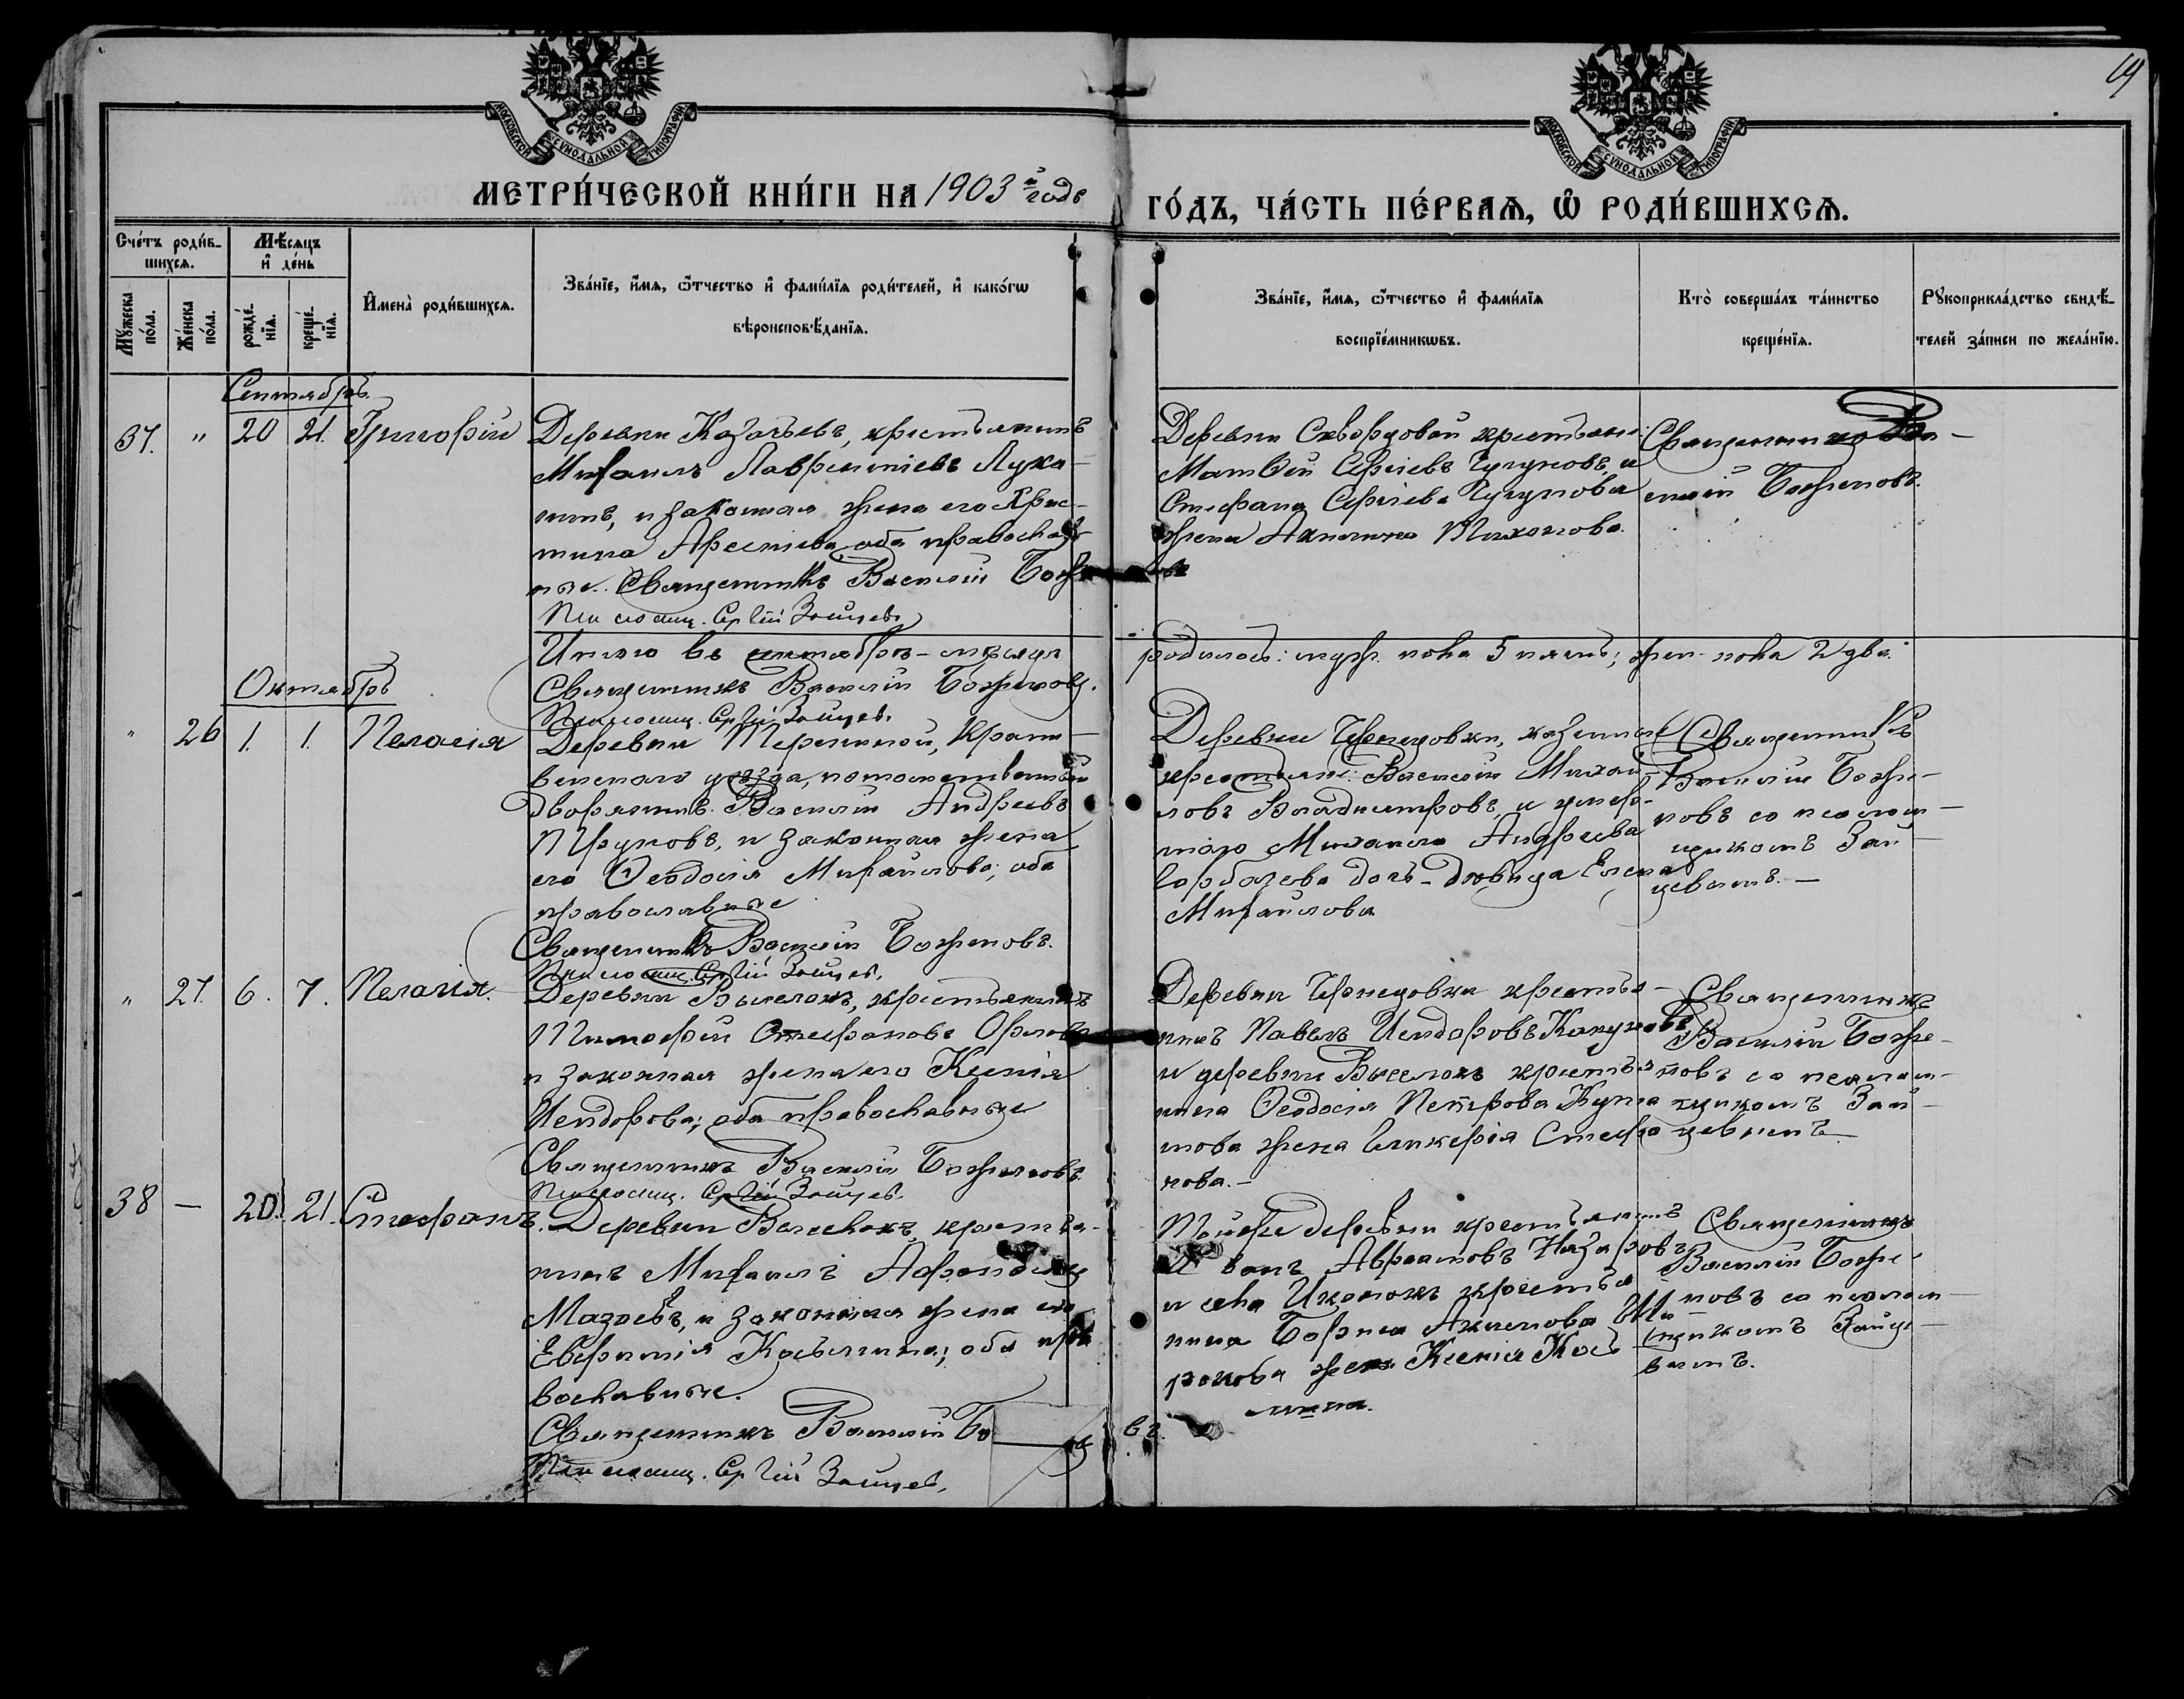 19
МОСКОВСКОЙ СѴНОДАЛЬНОЙ ТИПОГРАФІИ
МОСКОВСКОЙ СѴНОДАЛЬНОЙ ТИПОГРАФІИ
МЕТРИ́ЧЕСКОЙ КНИ́ГИ НА 1903 й годъ
ГО́ДЪ, ЧА́СТЬ ПЕ́РВАѦ, Ѿ РОДИ́ВШИХСѦ.
Сче́тъ роди́в-
шихсѧ.
Мѣ́сѧцъ
и҆ де́нь
Мꙋ́жеска
по́ла.
Же́нска
по́ла.
рожде́-
нїѧ.
креще́-
нїѧ.
И҆мена̀ роди́вшихсѧ.
Зва́нїе, и҆́мѧ, ѻ҆́тчество и҆ фами́лїѧ роди́телей, и҆ како́гѡ
вѣроисповѣ́данїѧ.
Зва́нїе, и҆́мѧ, ѻ҆́тчество и҆ фами́лїѧ
воспрїе́мникѡвъ.
Кто̀ соверша́лъ та́инство
креще́нїѧ.
Рꙋкоприкла́дство свидѣ́-
телей за́писи по жела́нїю.
Сентябрь
37. " 20 21. Григорій
Деревни Казачьевъ, крестьянинъ
Михаилъ Лаврентіевъ Лука-
нинъ, и законная жена его Хрис-
тина Арсеніева, оба православ-
ные. Священникъ Василій Баже-
новъ
Псаломщ. Сергій Зайцевъ
Деревни Скворцовой крестьяне:
Матвей Сергіевъ Чугуновъ, и
Стефана Сергіева Чугунова
жена Акилина Тихонова.
Священникъ Ва-
силій Баженовъ.
Итого въ сентябрѣ-мѣсяцѣ
родилось: муж. пола 5 пять; жен. пола 2 два.
Священникъ Василій Баженовъ.
Псаломщ. Сергій Зайцевъ.
Октябрь
" 26 1. 1. Пелагія
Деревни Терениной, Крапи-
венскаго уѣзда, потомственный
дворянинъ Василій Андреевъ
Пруновъ, и законная жена
его Ѳеодосія Михайлова; оба
православные
Священникъ Василій Баженовъ.
Псаломщ. Сергій Зайцевъ.
крестьяне: Василій Михай-
ловъ Владиміровъ, и умер-
шаго Михаила Андреева
Горбачева дочь-дѣвица Елена
Михайлова
Священникъ
Василій Баже-
новъ со псалом-
щикомъ Зай-
цевымъ.-
" 27. 6. 7. Пелагія.
Деревни Выселокъ, крестьянинъ
Тимофей Стефановъ Орловъ
и законная жена его Ксенія
Исидорова; оба православные
Священникъ Василій Баженовъ
Псаломщ. Сергій Зайцевъ.
крестья-
нинъ Павелъ Исидоровъ
и деревни Выселокъ крестья-
нина Ѳеодосія Петрова
жена Гликерія Стефа-
нова.-
Священникъ
Василій Баже-
новъ со псалом-
щикомъ Зай-
цевымъ.
38 - 20. 21. Стефанъ.
Деревни Выселокъ, крестья-
нинъ Михаилъ
Мазаевъ, и законная жена его
Евфимія Косьмина; оба пра-
вославные.
Священникъ Василій Ба
въ.
Псаломщ. Сергій Зайцевъ.
Той же деревни крестьянинъ
Иванъ Аврамовъ Назаровъ
и села Иконокъ крестья-
нина Бориса Акимова Ми-
ронова жена Ксенія Кось-
мина.
Священникъ
Василій Баже-
новъ со псалом-
щикомъ Зайце-
вымъ.